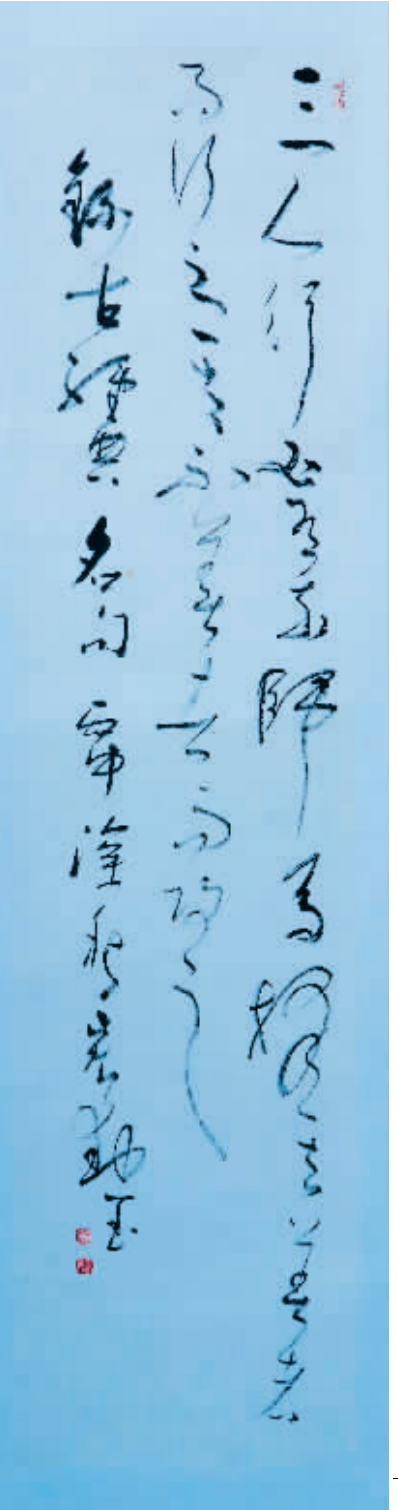 三人行必有我師焉擇其善者
而從之其不善者而改之
錄古經典名句